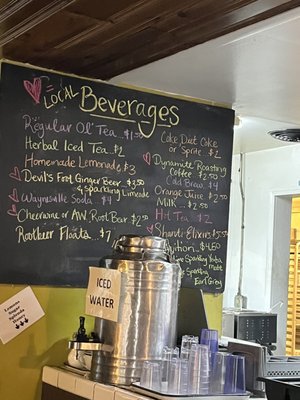 ♥ = Local
Beverages
Regular Ol' Tea...$1.50
Herbal Iced Tea...$2
Homemade Lemonade...$3
Devil's Foot Ginger Beer...$3.50
& sparkling Limeade
Waynesville Soda $4
Cheerwine or AW Root Beer $2
Rootbeer Floats...$7
Coke Diet Coke
or Sprite $2
Dynamite Roasting
Coffee $2.50
Cold Brew $4
Orange Juice $2.50
Milk...$2.50
Hot Tea $2
Shanti Elixirs $5.50
$4.50
Sparkling Yerba
Mate
Sparkling
Earl Grey
ICED
WATER